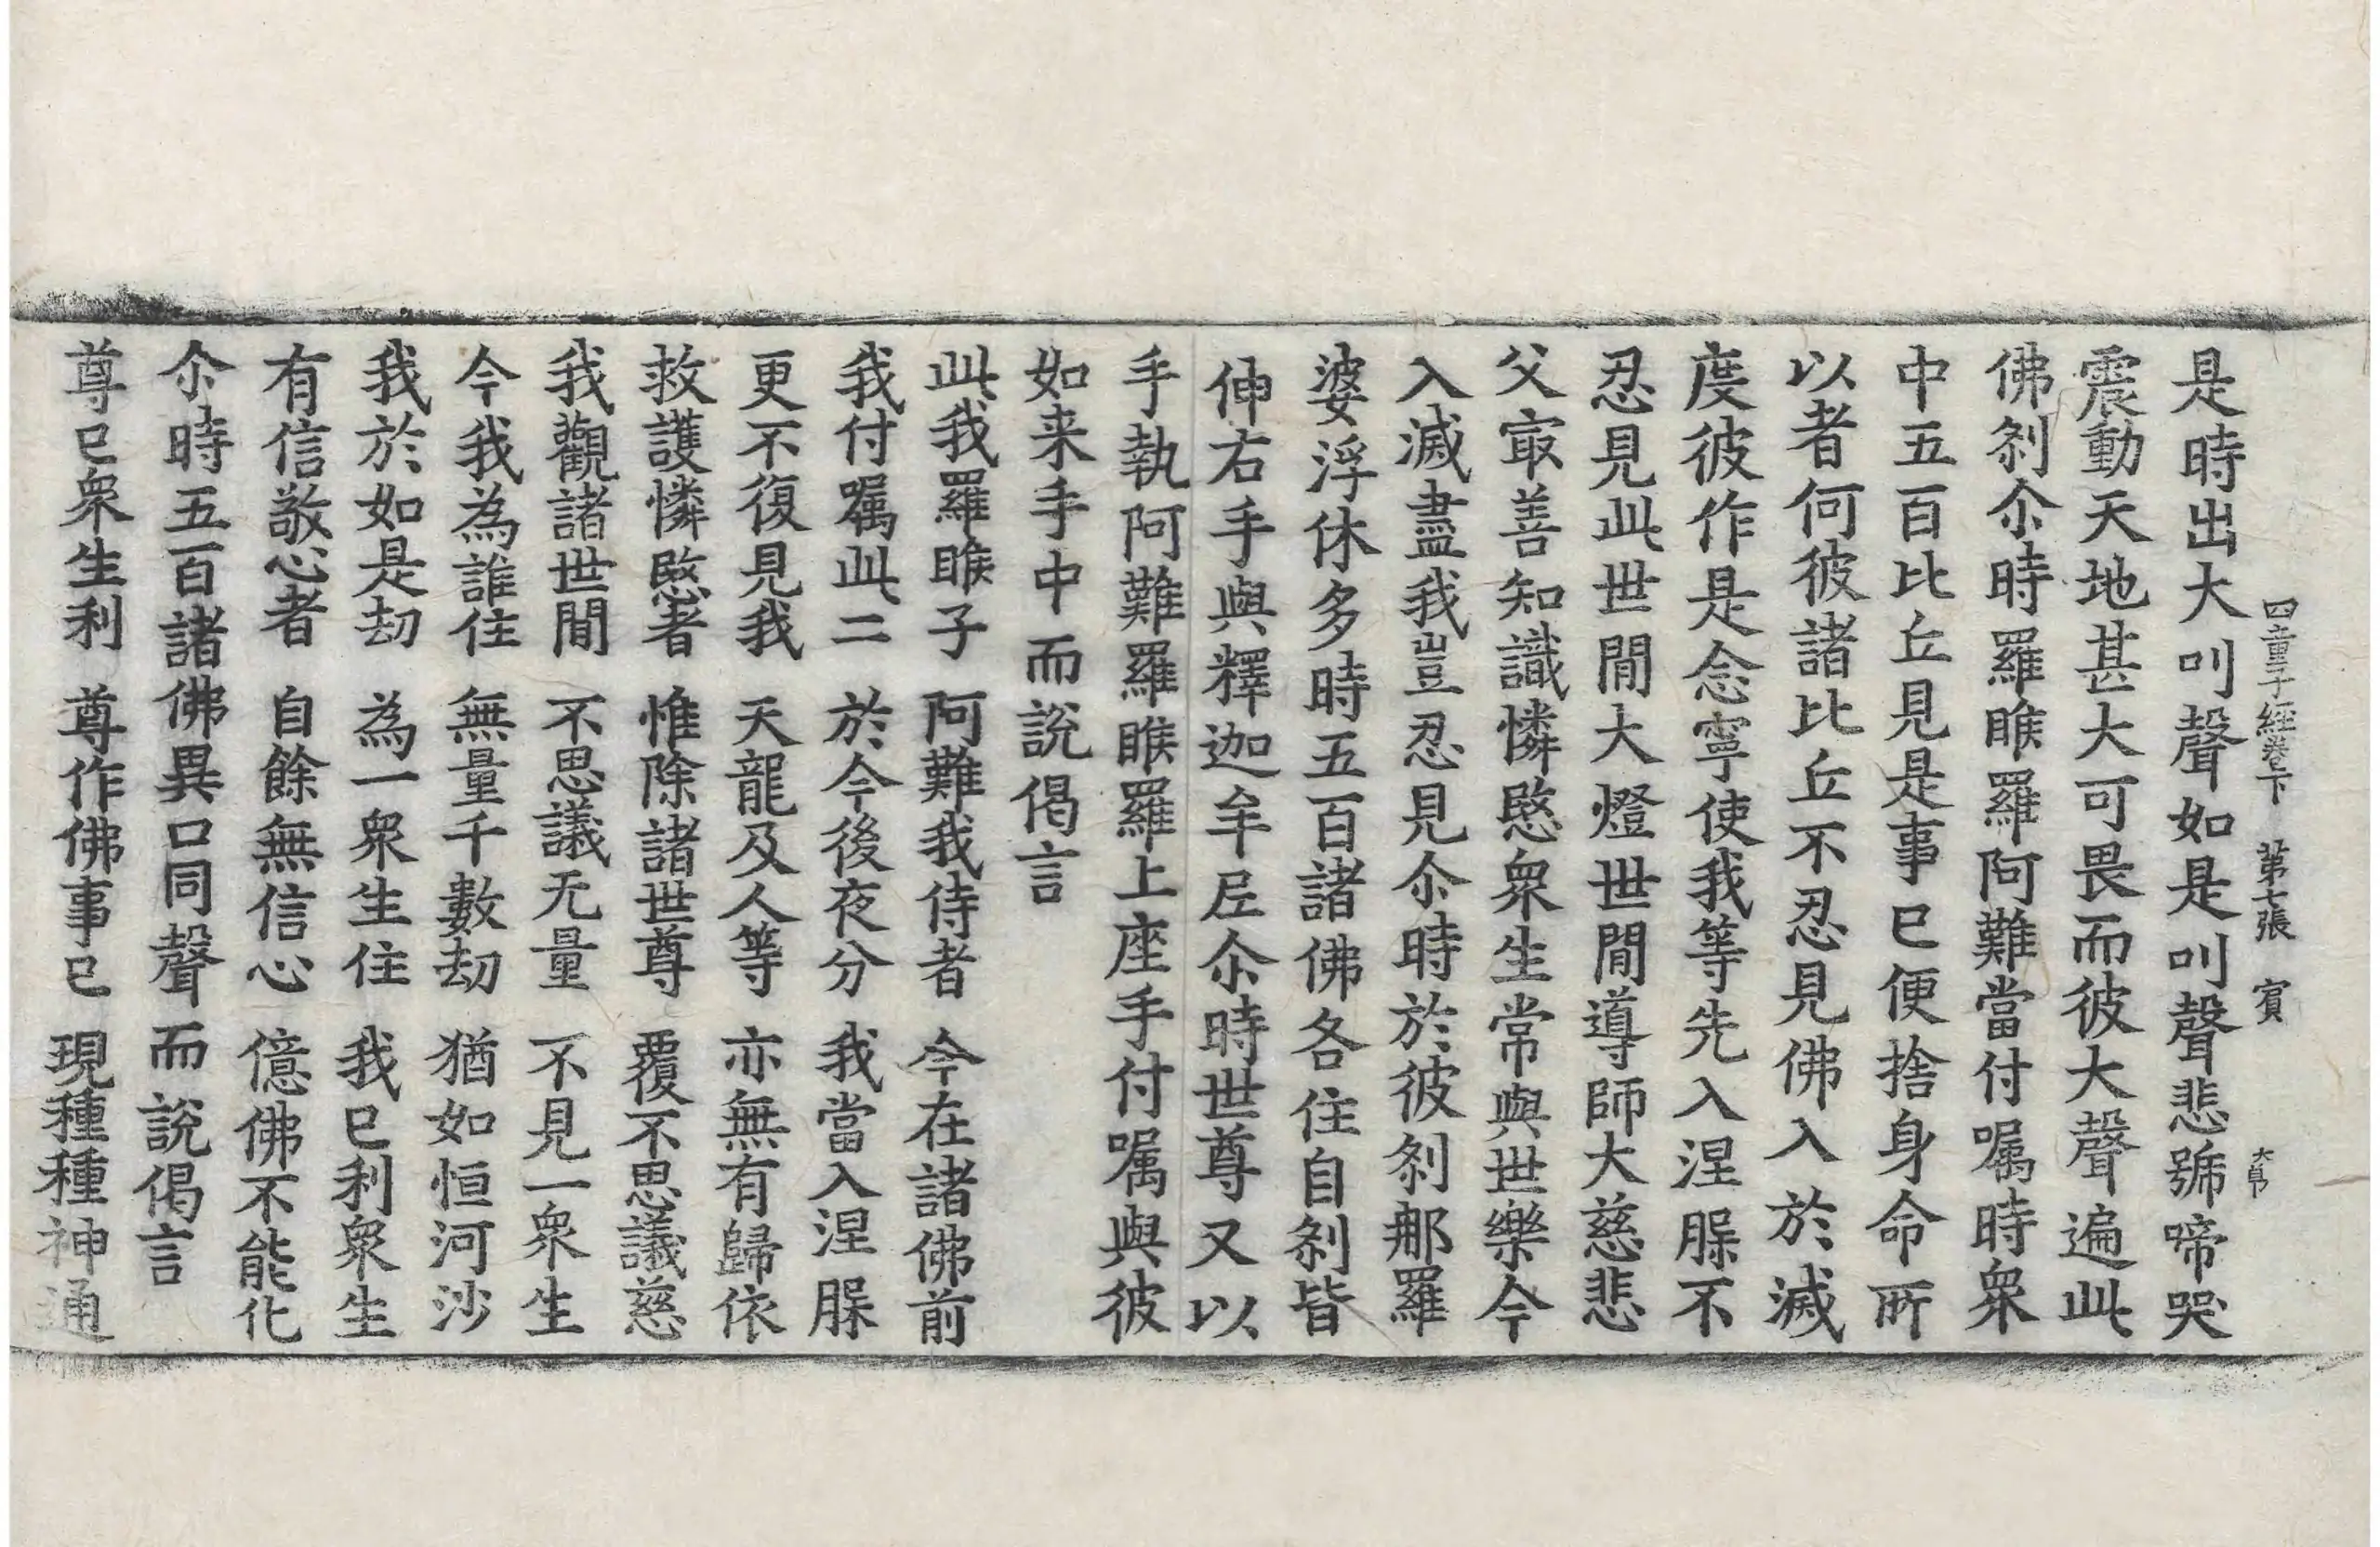 四童子經卷下　第七張　賓　大阜
是時出大叫聲如是叫聲悲號啼哭
震動天地甚大可畏而彼大聲遍此
佛刹尒時羅睺羅阿難當付囑時衆
中五百比丘見是事已便捨身命所
以者何彼諸比丘不忍見佛入於滅
度彼作是念寧使我等先入涅槃不
忍見此世間大燈世間導師大慈悲
父㝡善知識憐愍衆生常與世樂今
入滅盡我豈忍見尒時於彼刹那羅
婆浮休多時五百諸佛各住自刹皆
伸右手與釋迦牟尼尒時世尊又以
手執阿難羅睺羅上座手付囑與彼
如来手中而說偈言
此我羅睺子　阿難我侍者　今在諸佛前
我付囑此二　於今後夜分　我當入涅槃
更不復見我　天龍及人等　亦無有歸依
救護憐愍者　惟除諸世尊　覆不思議慈
我觀諸世間　不思議无量　不見一衆生
今我為誰住　無量千數劫　猶如恒河沙
我於如是劫　為一衆生住　我已利衆生
有信敬心者　自餘無信心　億佛不能化
尒時五百諸佛異口同聲而說偈言
尊已衆生利　尊作佛事已　現種種神通